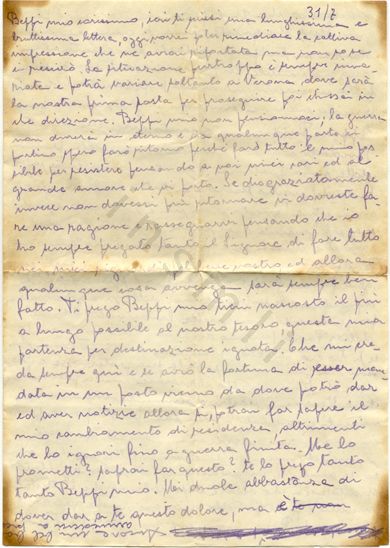 31/7
Beppi mio carissimo, ieri ti scrissi una lunghissima e
bruttissima lettera, oggi vorrei poter rimediare la cattiva
impressione che ne avrai riportata ma non so se
ci riuscirò. La situazione purtroppo è sempre
e potrà variare soltanto a Verona dove sarà
la nostra prima sosta per proseguire poi chissà in
che direzione. Beppi mio non pensiamoci, la guerra
non durerà in eterno e da qualunque parte io
parta spero farò ritorno perché farò tutto il mio pos
sibile per resistere pensando a voi miei cari ed al
grande amore che vi porto. Se disgraziatamente
invece non dovessi più ritornare vi dovreste fa=
re una ragione e rassegnarvi pensando che io
ho sempre pregato tanto il Signore di fare tutto
nostro ed allora
qualunque cosa avvenga sarà sempre ben
fatto. Ti prego Beppi mio tieni nascosto il più
a lungo possibile al nostro tesoro, questa mia
partenza per destinazione ignota. Che mi cre=
da sempre qui e se avrò la fortuna di esser man
data in un posto vicino da dove potrò dar
ed aver notizie allora potrai far sapere il
mio cambiamento di residenza, altrimenti
che lo ignori fino a guerra finita. Me lo
prometti? Saprai far questo? te lo prego tanto
tanto Beppi mio. Mi duole abbastanza di
dover dar a te questo dolore, ma